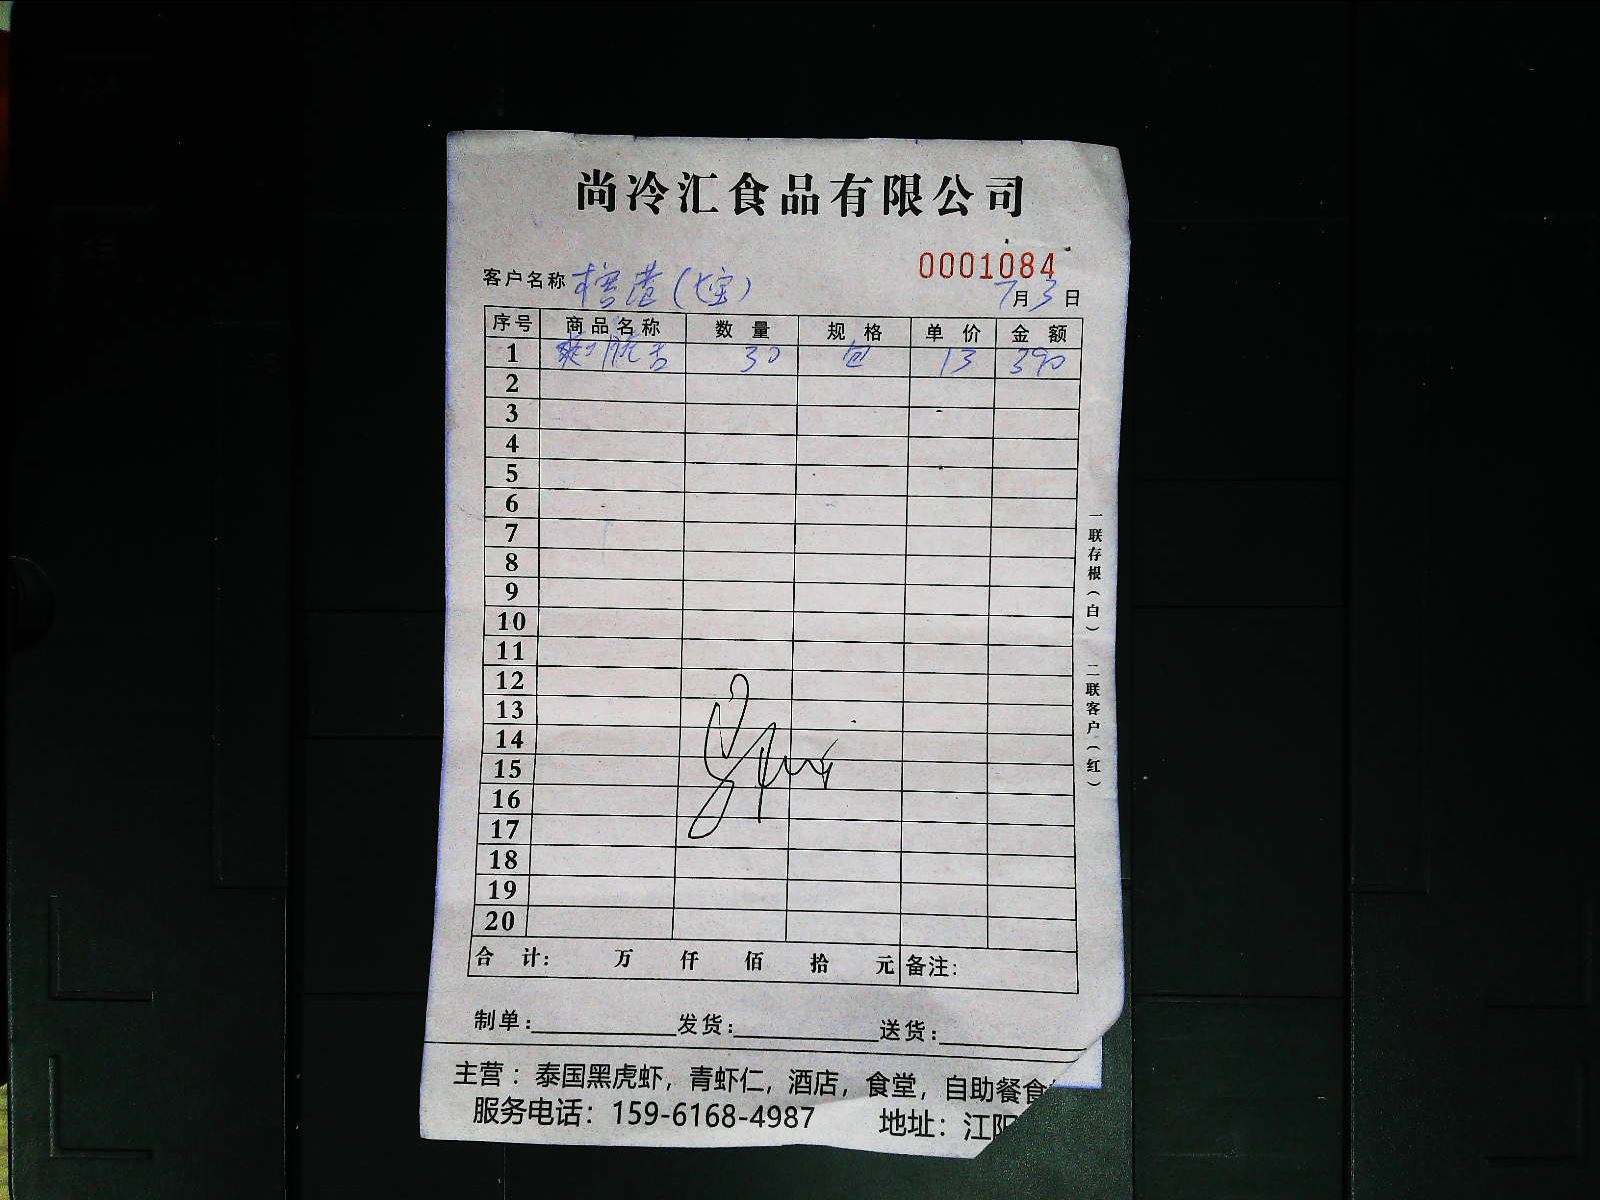 尚冷汇食品有限公司
0001084
客户名称 (七宝) 7月3日
序号 商品名称 数量 规格 单价 金额
1 爽脆舌 30 包 13 390
2
3
4
5
6
7
8
9
10
11
12
13
14
15
16
17
18
19
20
合计: 万 仟 佰 拾 元 备注:
一联存根(白) 二联客户(红)
制单: 发货: 送货:
主营：泰国黑虎虾，青虾仁，酒店，食堂，自助餐食
服务电话：159-6168-4987 地址：江阳